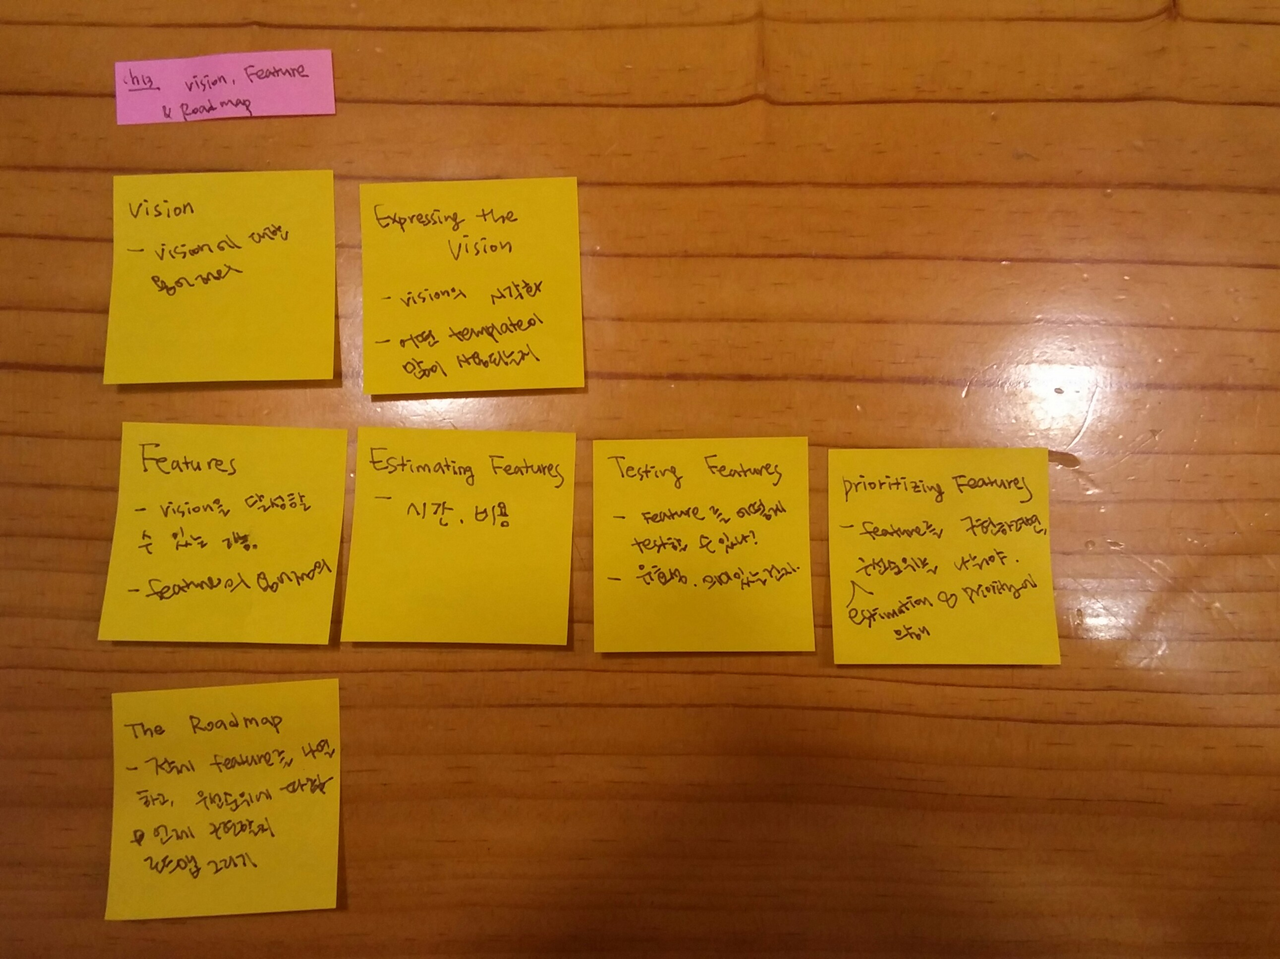 ch13 Vision, Feature
& Roadmap
Vision
- Vision에 대한
용어정의
Expressing the
Vision
- Vision의 시각화
- 어떤 template이
많이 사용되는지
Features
- Vision을 달성할
수 있는 기능.
- feature의 용어정의
Estimating Features
- 시간, 비용
Testing Features
- Feature를 어떻게
test할 수 있나?
- 유효성, 의미있는건지.
Prioritizing Features
- feature를 구현하려면,
우선순위를 나눠야.
estimation & priority에
의해
The Roadmap
- 전체 feature를 나열
하고, 우선순위에 따라
언제 구현할지
로드맵 그리기